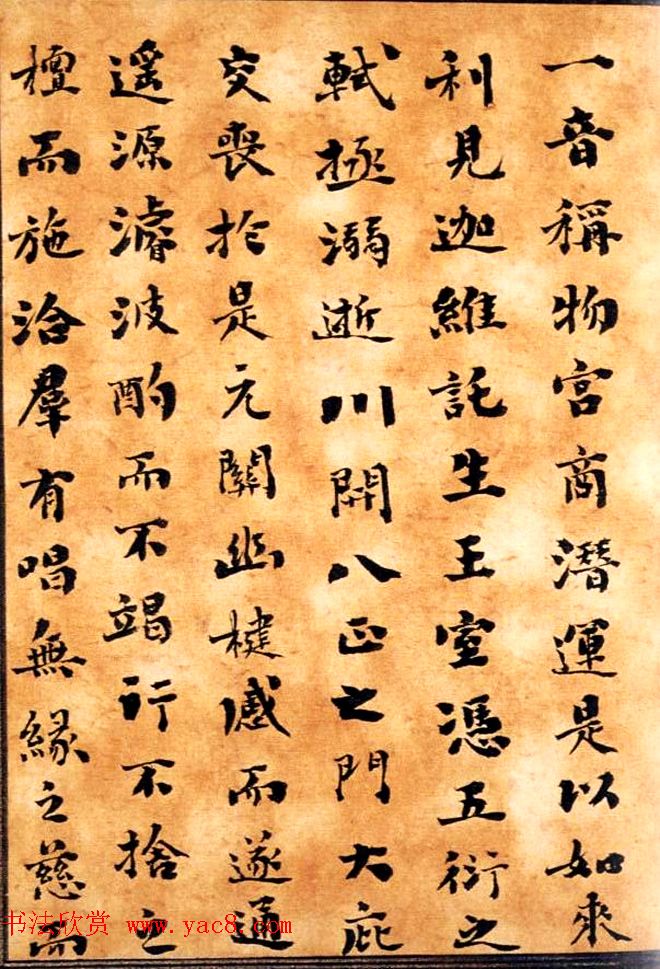 一音稱物宮商潛運是以如來
利見迦維託生王室憑五衍之
軾拯溺逝川開八正之門大庇
交喪於是元關幽楗感而遂通
遥源濬波酌而不竭行不捨之
檀而施洽羣有唱無緣之慈而
书法欣赏 www.yac8.com